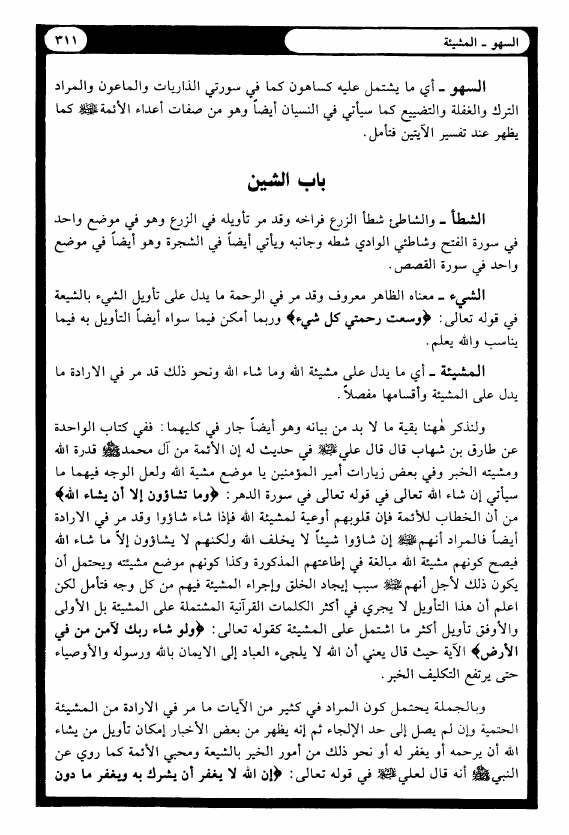 السهو ـ المشيئة
٣١١
السهو ـ أي ما يشتمل عليه كساهون كما في سورتي الذاريات والماعون والمراد
الترك والغفلة والتضييع كما سيأتي في النسيان أيضاً وهو من صفات أعداء الأئمة ﷺ كما
يظهر عند تفسير الآيتين فتأمل.
باب الشين
الشطأ ـ والشاطئ شطأ الزرع فراخه وقد مر تأويله في الزرع وهو في موضع واحد
في سورة الفتح وشاطئي الوادي شطه وجانبه ويأتي أيضاً في الشجرة وهو أيضاً في موضع
واحد في سورة القصص.
الشيء ـ معناه الظاهر معروف وقد مر في الرحمة ما يدل على تأويل الشيء بالشيعة
في قوله تعالى: ﴿وسعت رحمتي كل شيء﴾ وربما أمكن فيما سواه أيضاً التأويل به فيما
يناسب والله يعلم.
المشيئة ـ أي ما يدل على مشيئة الله وما شاء الله ونحو ذلك قد مر في الارادة ما
يدل على المشيئة وأقسامها مفصلاً.
ولنذكر هٰهنا بقية ما لا بد من بيانه وهو أيضاً جار في كليهما: ففي كتاب الواحدة
عن طارق بن شهاب قال قال علي ﷺ في حديث له إن الأئمة من آل محمد ﷺ قدرة الله
ومشيته الخبر وفي بعض زيارات أمير المؤمنين يا موضع مشية الله ولعل الوجه فيهما ما
سيأتي إن شاء الله تعالى في قوله تعالى في سورة الدهر: ﴿وما تشاؤون إلا أن يشاء الله﴾
من أن الخطاب للأئمة فإن قلوبهم أوعية لمشيئة الله فإذا شاء شاؤوا وقد مر في الارادة
أيضاً فالمراد أنهم ﷺ إن شاؤوا شيئاً لا يخلف الله ولكنهم لا يشاؤون إلاّ ما شاء الله
فيصح كونهم مشيئة الله مبالغة في إطاعتهم المذكورة وكذا كونهم موضع مشيئته ويحتمل أن
يكون ذلك لأجل أنهم ﷺ سبب إيجاد الخلق وإجراء المشيئة فيهم من كل وجه فتأمل لكن
اعلم أن هذا التأويل لا يجري في أكثر الكلمات القرآنية المشتملة على المشيئة بل الأولى
والأوفق تأويل أكثر ما اشتمل على المشيئة كقوله تعالى: ﴿ولو شاء ربك لآمن من في
الأرض﴾ الآية حيث قال يعني أن الله لا يلجىء العباد إلى الايمان بالله ورسوله والأوصياء
حتى يرتفع التكليف الخبر.
وبالجملة يحتمل كون المراد في كثير من الآيات ما مر في الارادة من المشيئة
الحتمية وإن لم يصل إلى حد الإلجاء ثم إنه يظهر من بعض الأخبار إمكان تأويل من يشاء
الله أن يرحمه أو يغفر له أو نحو ذلك من أمور الخير بالشيعة ومحبي الأئمة كما روي عن
النبي ﷺ أنه قال لعلي ﷺ في قوله تعالى: ﴿إن الله لا يغفر أن يشرك به ويغفر ما دون